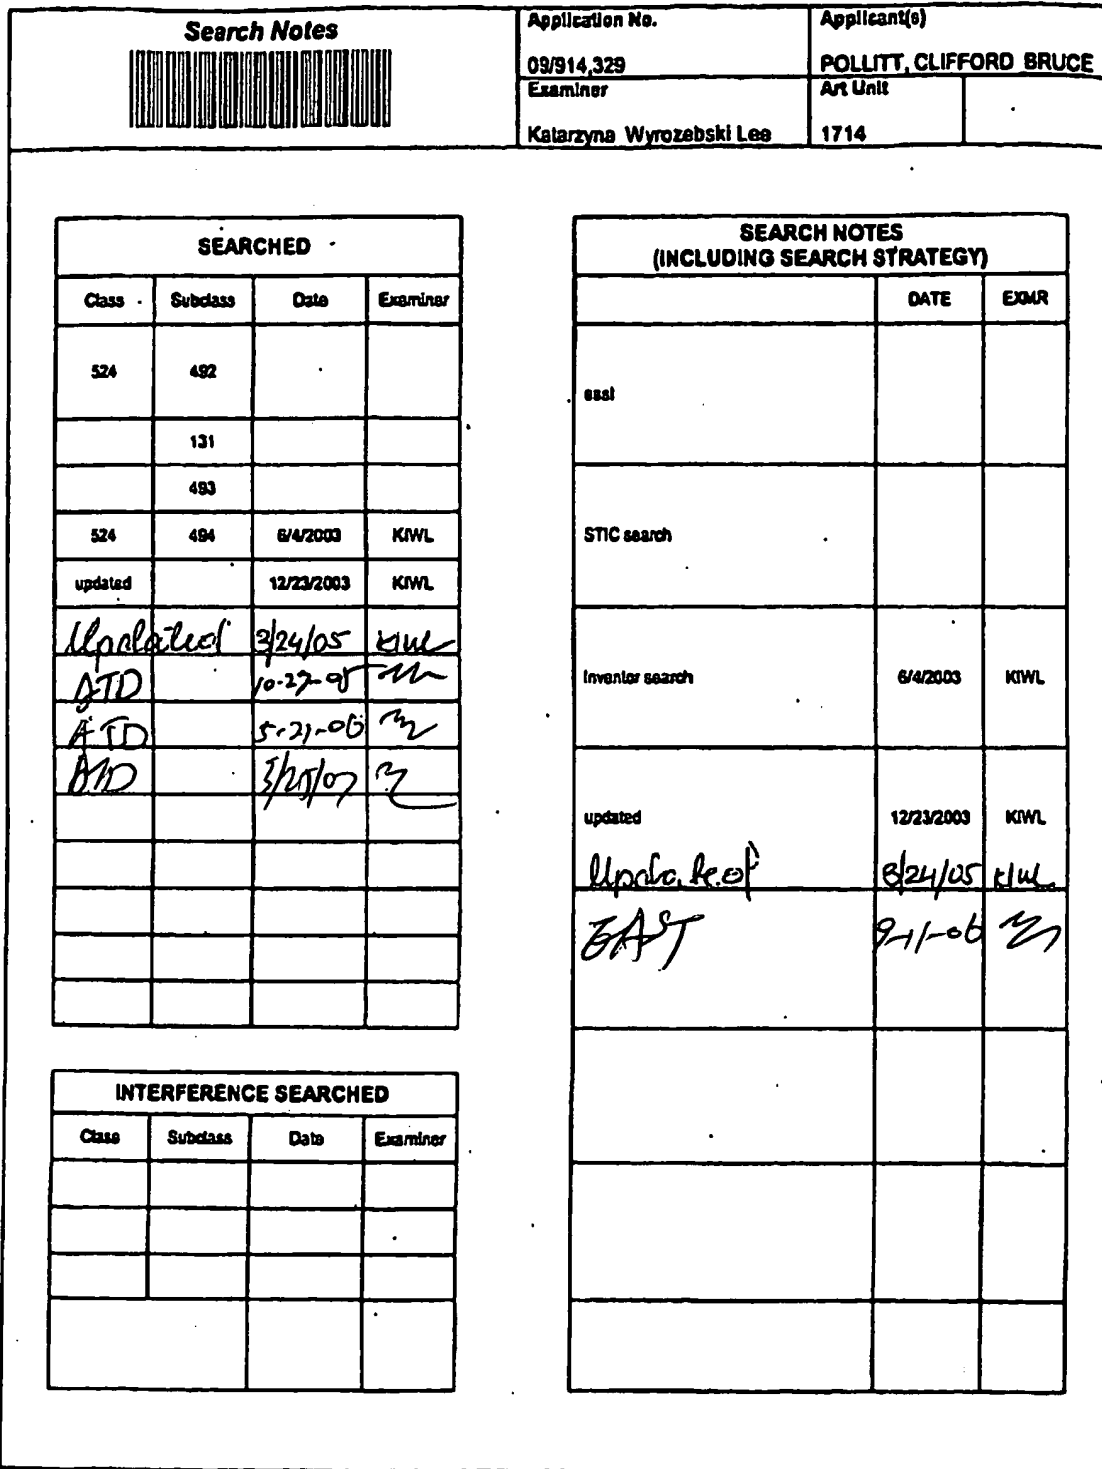 Search Notes
Application No.
09/914,329
Applicant(s)
POLLITT, CLIFFORD BRUCE
Examiner
Katarzyna Wyrozebski Lee
Art Unit
1714
SEARCHED
Class Subclass Date Examiner
524 492
131
493
524 494 6/4/2003 KIWL
updated 12/23/2003 KIWL
Updated 3/24/05 KIWL
ATD 10-27-05
ATD 5-21-06
ATD
INTERFERENCE SEARCHED
Class Subclass Date Examiner
SEARCH NOTES
(INCLUDING SEARCH STRATEGY)
DATE EXMR
east
STIC search
Inventor search 6/4/2003 KIWL
updated 12/23/2003 KIWL
Updated 3/24/05 KIWL
EAST 9-11-06